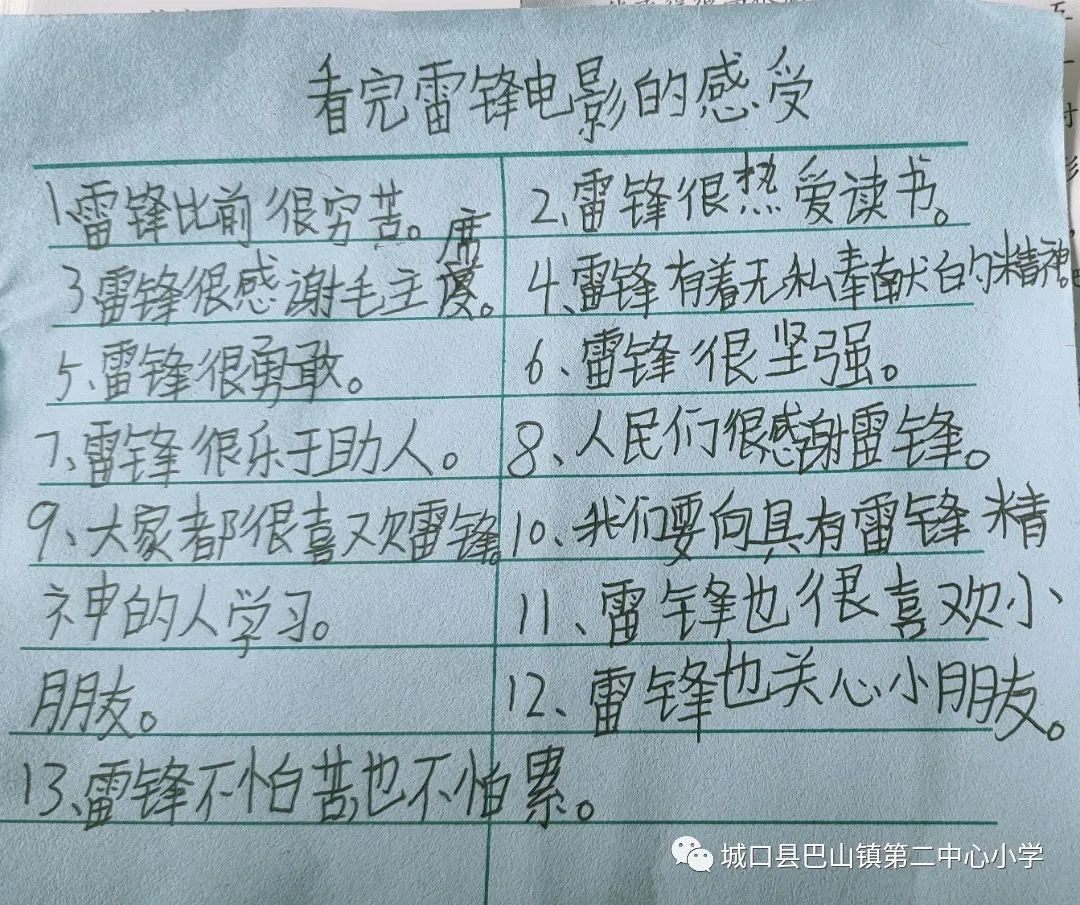 看完雷锋电影的感受
1、雷锋比前很穷苦。
2、雷锋很热爱读书。
3、雷锋很感谢毛主席。
4、雷锋有着无私奉献白的精神。
5、雷锋很勇敢。
6、雷锋很坚强。
7、雷锋很乐于助人。
8、人民们很感谢雷锋。
9、大家都很喜欢雷锋。
10、我们要向具有雷锋精
神的人学习。
11、雷锋也很喜欢小
朋友。
12、雷锋也关心小朋友。
13、雷锋不怕苦也不怕累。
城口县巴山镇第二中心小学